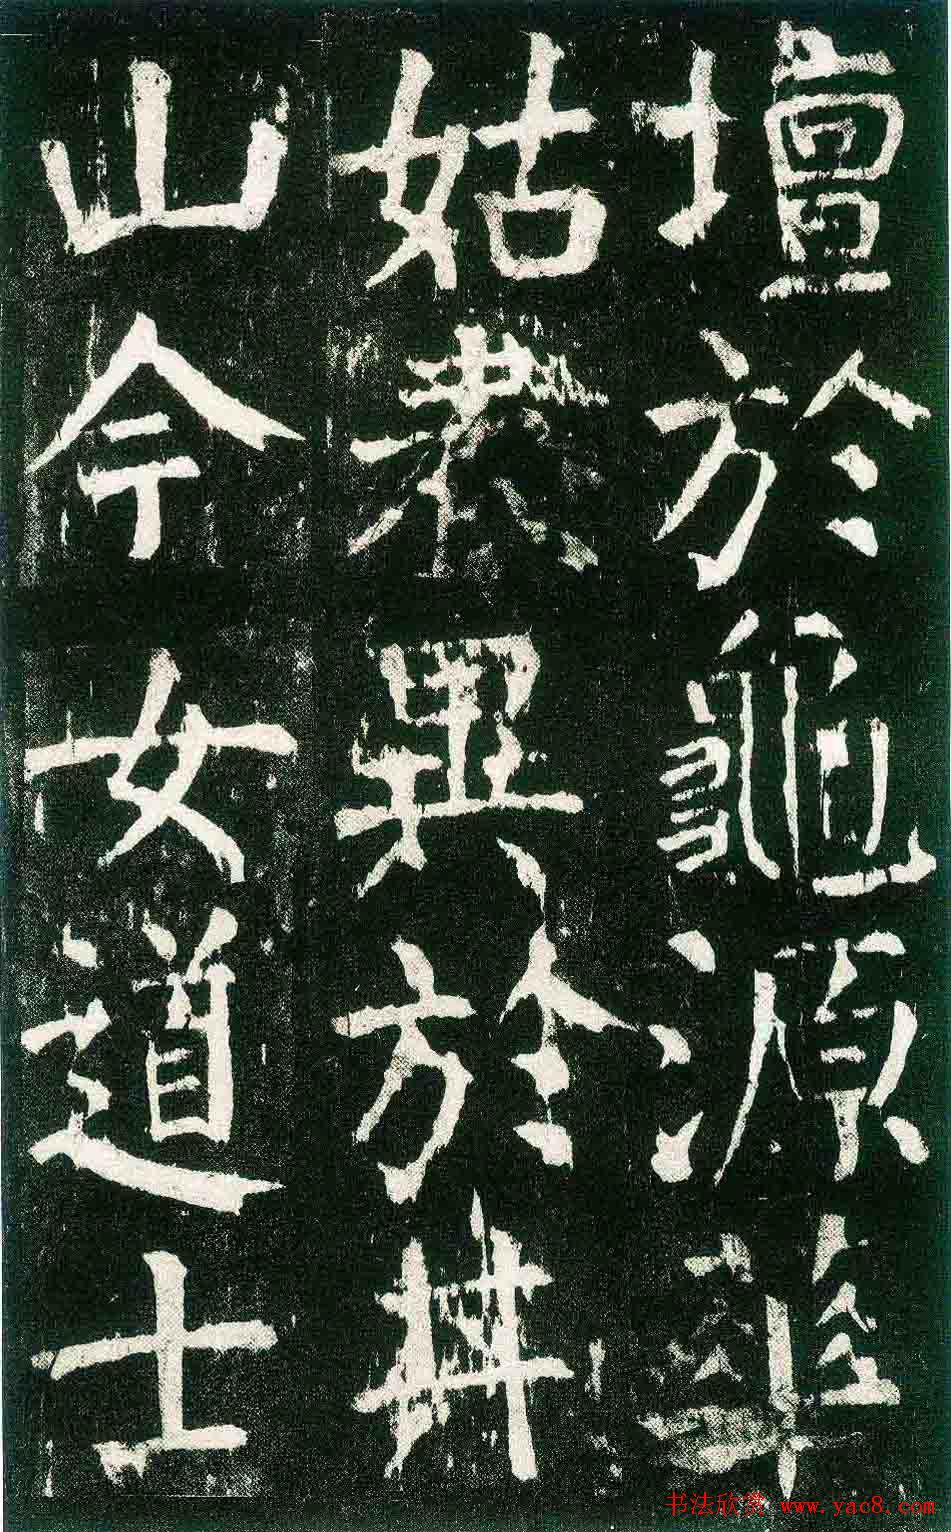 壇於龜源華
姑表異於井
山今女道士
书法欣赏 www.yac8.com